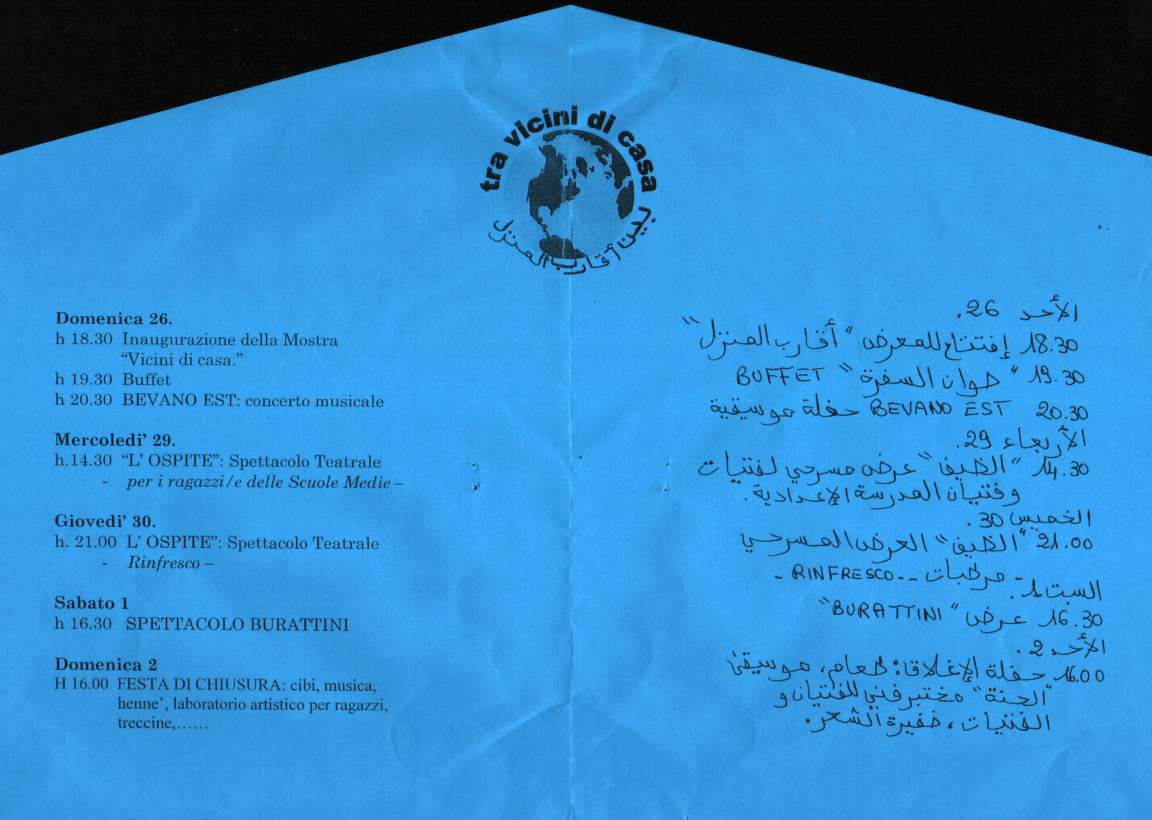 tra vicini di casa
بين أقارب المنزل
Domenica 26.
h 18.30 Inaugurazione della Mostra
“Vicini di casa.”
h 19.30 Buffet
h 20.30 BEVANO EST: concerto musicale
Mercoledi’ 29.
h.14.30 “L’ OSPITE”: Spettacolo Teatrale
- per i ragazzi/e delle Scuole Medie –
Giovedi’ 30.
h. 21.00 L’ OSPITE”: Spettacolo Teatrale
- Rinfresco –
Sabato 1
h 16.30 SPETTACOLO BURATTINI
Domenica 2
H 16.00 FESTA DI CHIUSURA: cibi, musica,
henne’, laboratorio artistico per ragazzi,
treccine,……
الأحد 26.
18.30 إفتتاح للمعرض "أقارب المنزل"
19.30 "خوان السفرة" BUFFET
20.30 BEVANO EST حفلة موسيقية
الأربعاء 29.
14.30 "الظيف" عرض مسرحي لفتيات
وفتيان المدرسة الإعدادية.
الخميس 30.
21.00 "الظيف" العرض المسرحي
- مرطبات -- RINFRESCO -
السبت 1.
16.30 عرض "BURATTINI"
الأحد 2.
16.00 حفلة الإغلاق: طعام، موسيقى
"الحنة" مختبر فني للفتيان و
الفتيات، ضفيرة الشعر.